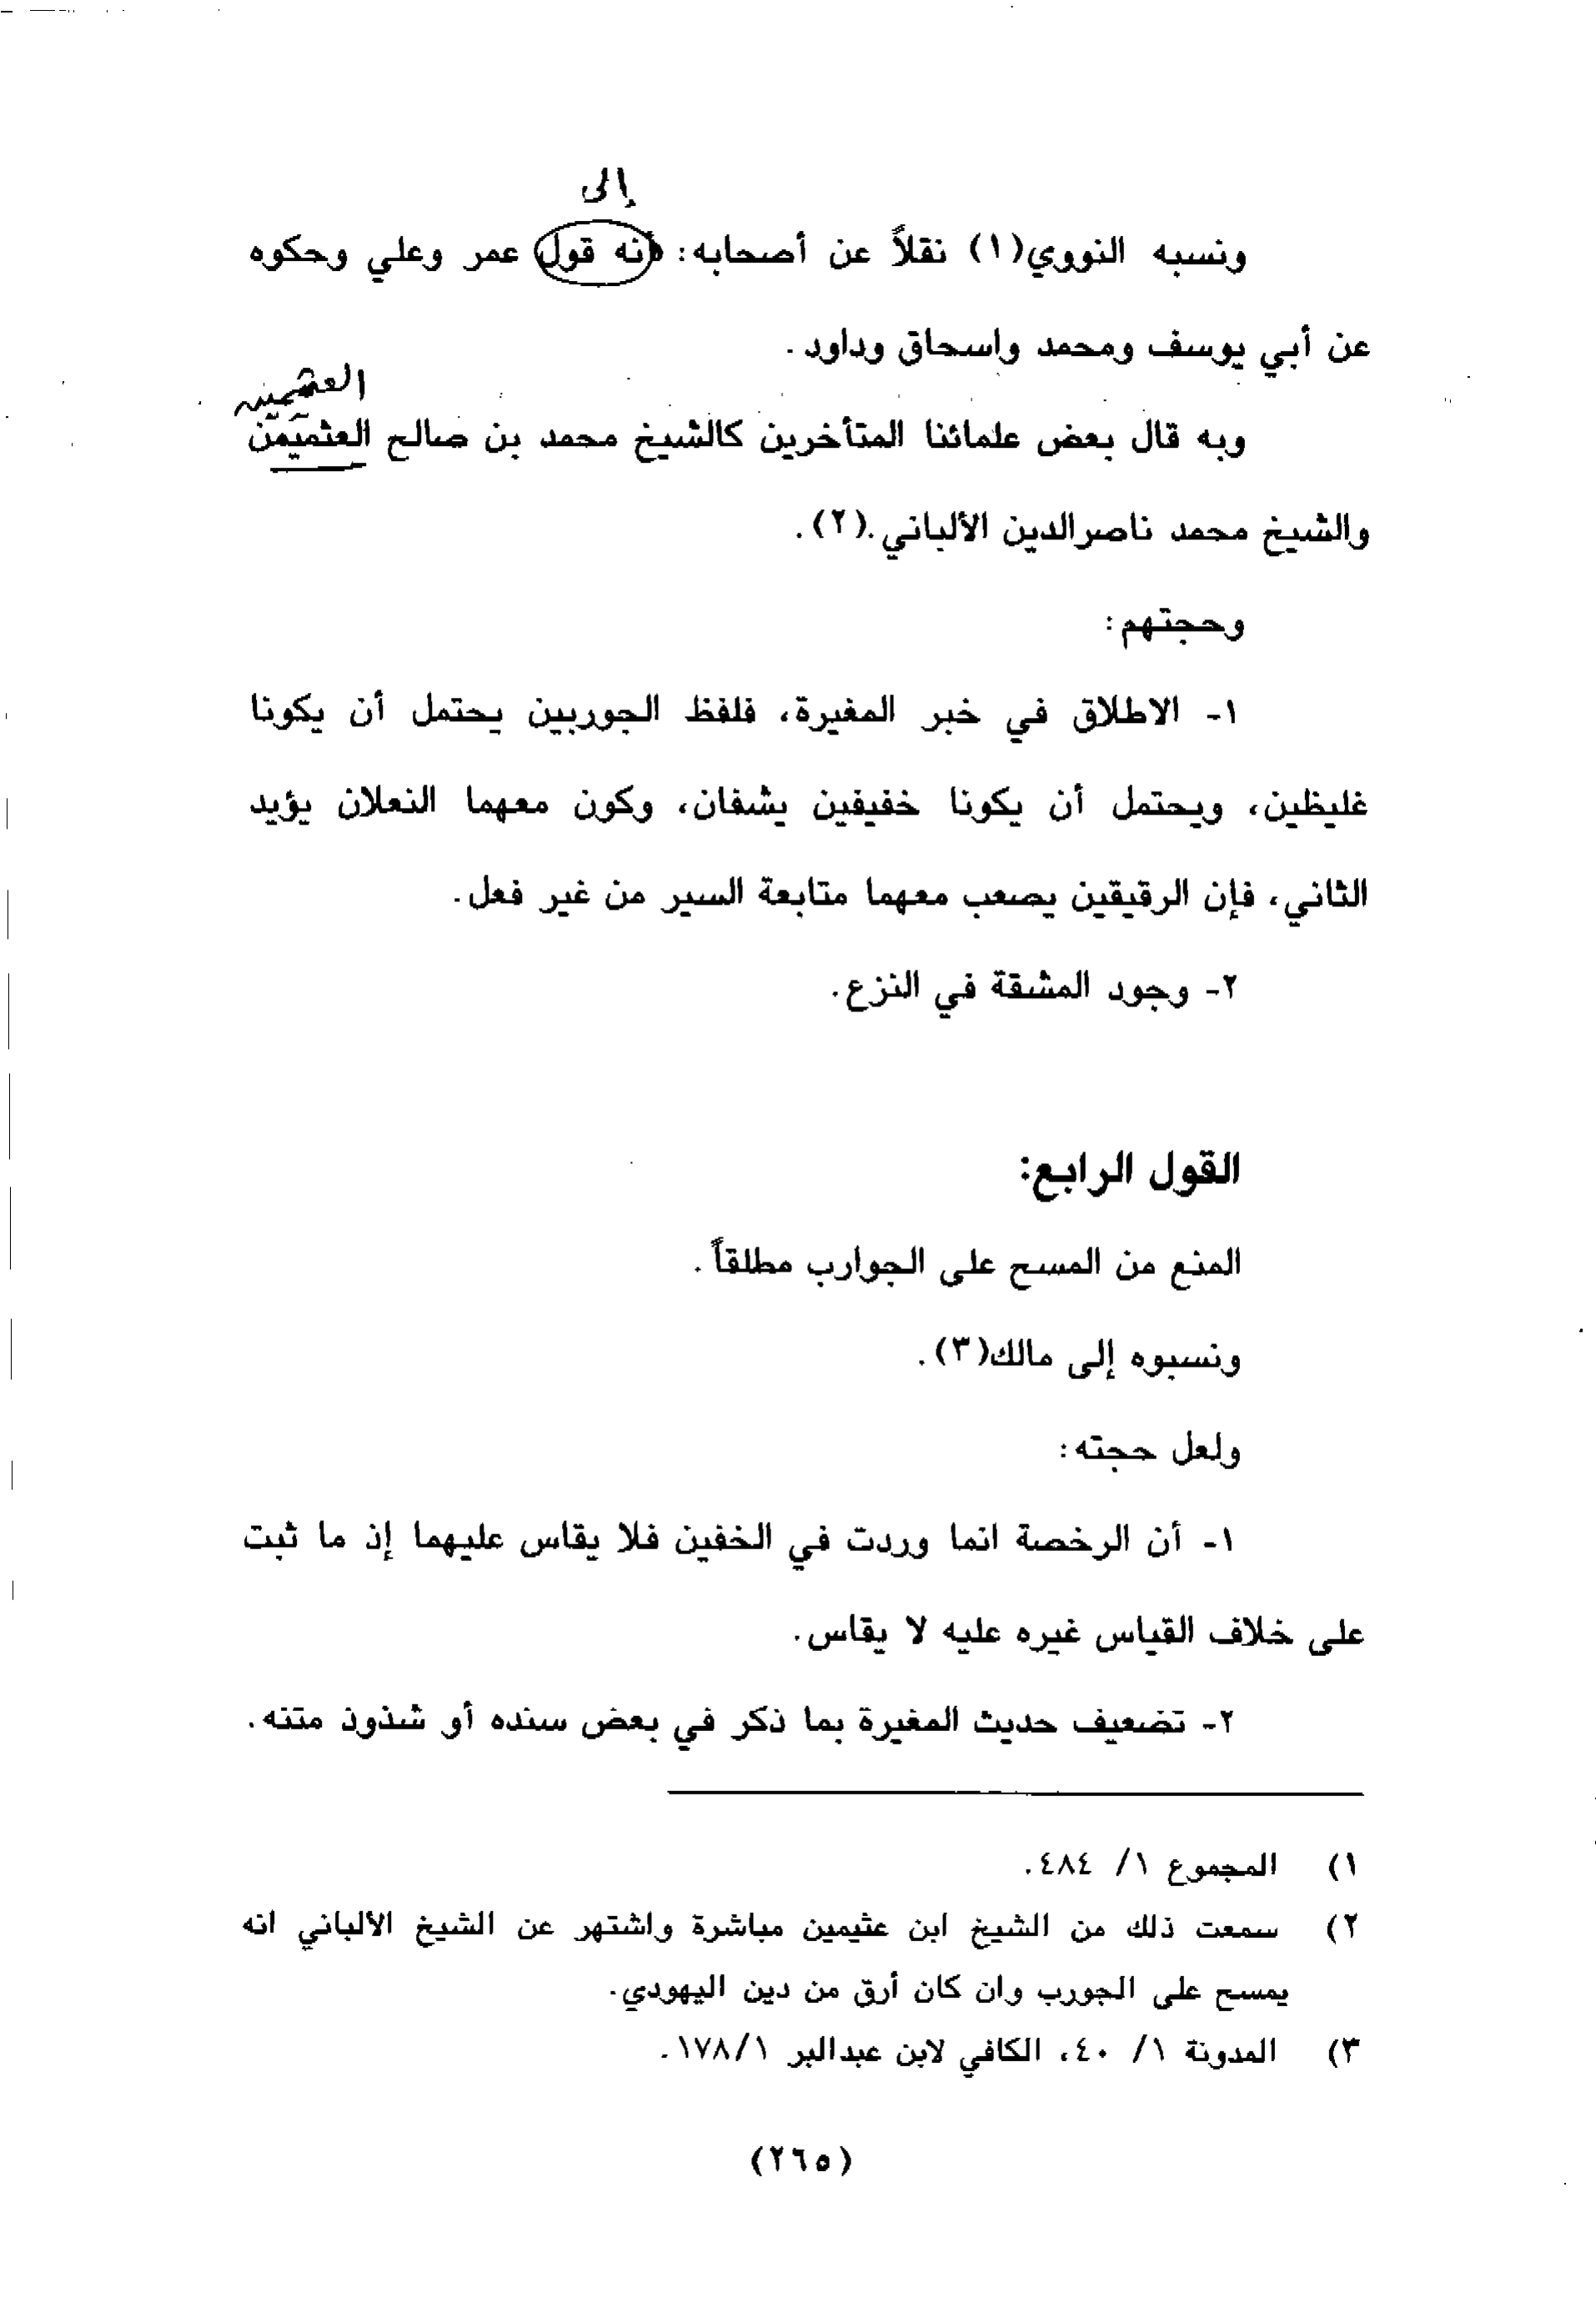 إلى
ونسبه النووي(١) نقلاً عن أصحابه: بأنه قول عمر وعلي وحكوه
عن أبي يوسف ومحمد واسحاق وداود.
العثيمين
وبه قال بعض علمائنا المتأخرين كالشيخ محمد بن صالح العثميمن
والشيخ محمد ناصرالدين الألباني.(٢).
وحجتهم:
١- الاطلاق في خبر المغيرة، فلفظ الجوربين يحتمل أن يكونا
غليظين، ويحتمل أن يكونا خفيفين يشفان، وكون معهما النعلان يؤيد
الثاني، فإن الرقيقين يصعب معهما متابعة السير من غير فعل.
٢- وجود المشقة في النزع.
القول الرابع:
المنع من المسح على الجوارب مطلقاً.
ونسبوه إلى مالك(٣).
ولعل حجته:
١- أن الرخصة انما وردت في الخفين فلا يقاس عليهما إذ ما ثبت
على خلاف القياس غيره عليه لا يقاس.
٢- تضعيف حديث المغيرة بما ذكر في بعض سنده أو شذوذ متنه.
١) المجموع ١/ ٤٨٤.
٢) سمعت ذلك من الشيخ ابن عثيمين مباشرة واشتهر عن الشيخ الالباني انه
يمسح على الجورب وان كان أرق من دين اليهودي.
٣) المدونة ١/ ٤٠، الكافي لابن عبدالبر ١/١٧٨.
(٢٦٥)